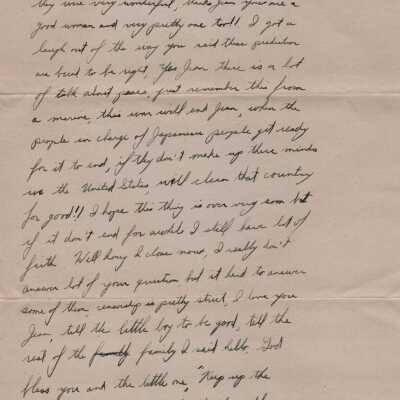 they were very wonderful, thanks Jean you are a
good woman and very pretty one too!! I got a
laugh out of the way you said those prediction
are bund to be right, Yes Jean there is a lot
of talk about peace, just remember this from
a marine, this war will end Jean, when the
people in charge of Japanese people get ready
for it to end, if they don't make up there minds
we the United States, will clean that country
for good!! I hope this thing is over very soon but
if it don't end for awhile I still have lot of
faith. Well hony I close now, I really don't
answer lot of your question but it hard to answer
some of them, censorship is pretty strict, I love you
Jean, tell the little boy to be good, tell the
rest of the family family I said hello. God
bless you and the little one, "Keep up the